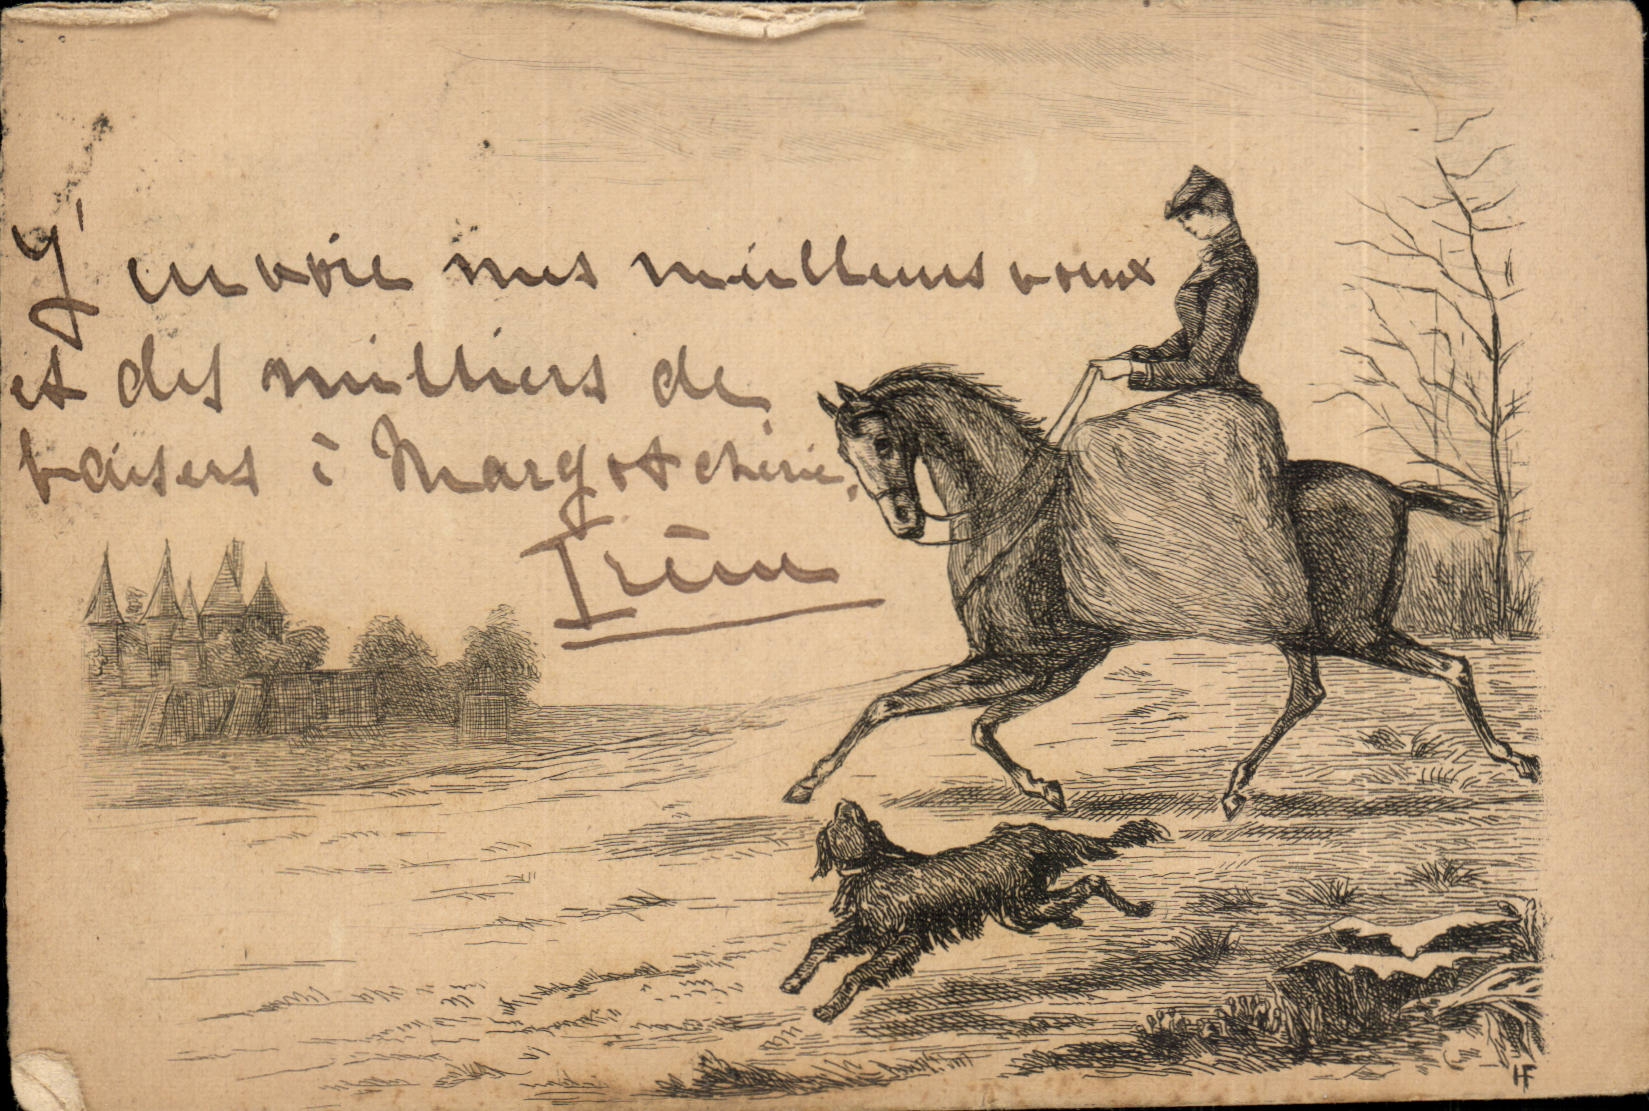 J'envoie mes meilleurs voeux
et des milliers de
baisers à Margot chérie.
Irène
HF